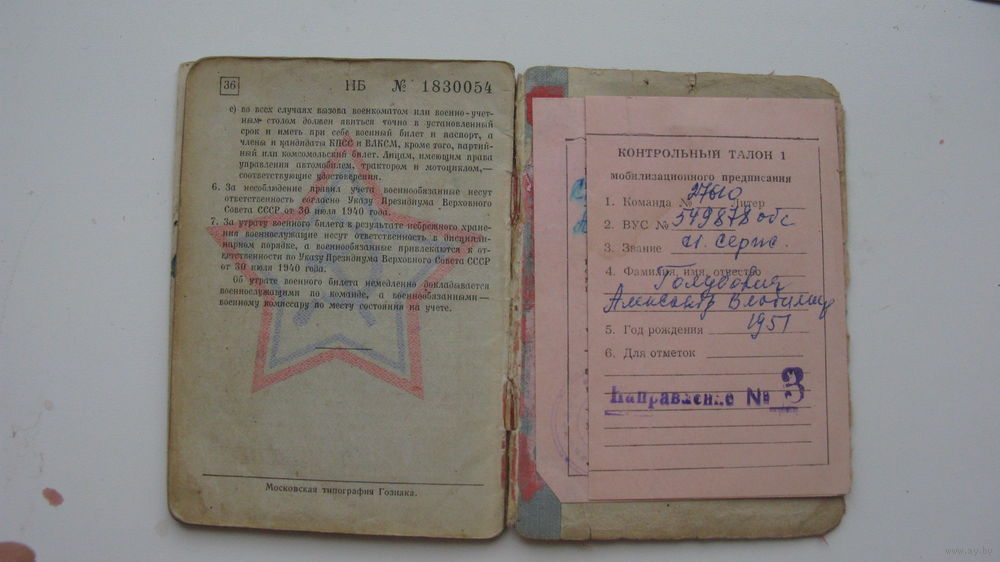 36
НБ № 1830054
е) во всех случаях вызова военкоматом или военно-учет-
ным столом должен явиться точно в установленный
срок и иметь при себе военный билет и паспорт, а
члены и кандидаты КПСС и ВЛКСМ, кроме того, партий-
ный или комсомольский билет. Лицам, имеющим права
управления автомобилем, трактором и мотоциклом,—
соответствующие удостоверения.
6. За несоблюдение правил учета военнообязанные несут
ответственность согласно Указу Президиума Верховного
Совета СССР от 30 июля 1940 года.
7. За утрату военного билета в результате небрежного хране-
ния военнослужащие несут ответственность в дисципли-
нарном порядке, а военнообязанные привлекаются к от-
ветственности по Указу Президиума Верховного Совета СССР
от 30 июля 1940 года.
Об утрате военного билета немедленно докладывается
военнослужащими по команде, а военнообязанными—
военному комиссару по месту состояния на учете.
Московская типография Гознака.
КОНТРОЛЬНЫЙ ТАЛОН 1
мобилизационного предписания
1. Команда № Литер
2. ВУС № 549878 обс
3. Звание
4. Фамилия, имя, отчество
Александр
5. Год рождения 1951
6. Для отметок
Направление № 3
www.ay.by